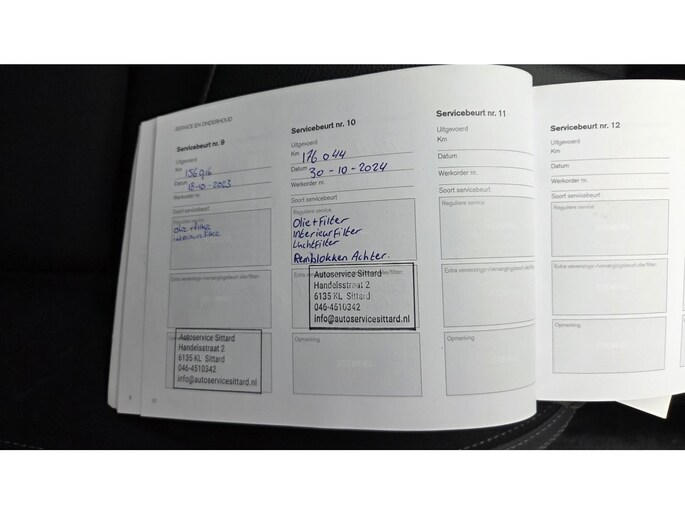 SERVICE EN ONDERHOUD
Servicebeurt nr. 9
Uitgevoerd
Km 156916
Datum 18-10-2023
Werkorder nr.
Soort servicebeurt
Reguliere service
Olie + Filter
Interieurfilter
Autoservice Sittard
Handelsstraat 2
6135 KL Sittard
046-4510342
info@autoservicesittard.nl
Servicebeurt nr. 10
Uitgevoerd
Km 176044
Datum 30-10-2024
Werkorder nr.
Soort servicebeurt
Reguliere service
Olie+Filter
InterieurFilter
Luchtfilter
Remblokken Achter.
Autoservice Sittard
Handelsstraat 2
6135 KL Sittard
046-4510342
info@autoservicesittard.nl
Opmerking
Servicebeurt nr. 11
Uitgevoerd
Km
Datum
Werkorder nr.
Soort servicebeurt
Reguliere service
Opmerking
Servicebeurt nr. 12
Uitgevoerd
Km
Datum
Werkorder nr.
Soort servicebeurt
Reguliere service
Opmerking